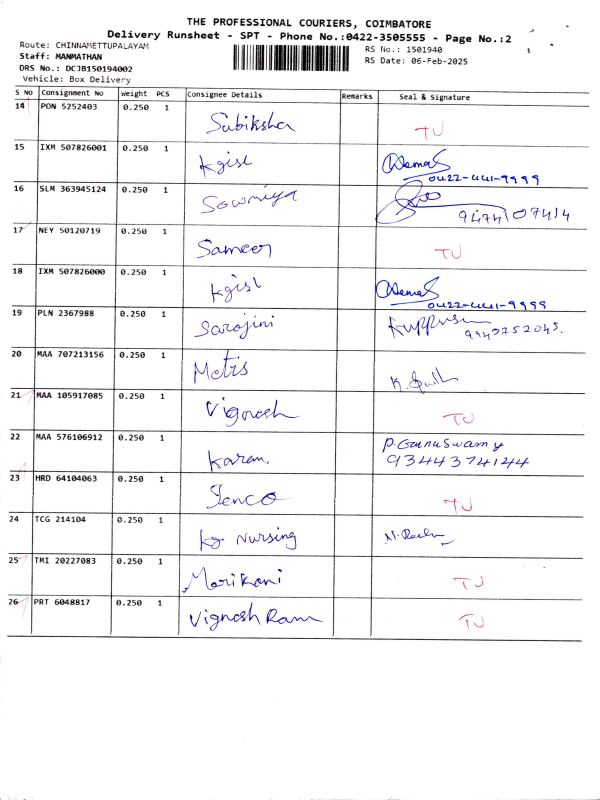 THE PROFESSIONAL COURIERS, COIMBATORE
Delivery Runsheet - SPT - Phone No.:0422-3505555 - Page No.:2
Route: CHINNAMETTUPALAYAM
Staff: MANMATHAN
DRS No.: DCJB150194002
Vehicle: Box Delivery
RS No.: 1501940
RS Date: 06-Feb-2025
S No Consignment No Weight PCS Consignee Details Remarks Seal & Signature
14 PON 5252403 0.250 1 Subiksha TU
15 IXM 507826001 0.250 1 Kgisl
0422-441-9999
16 SLM 363945124 0.250 1 Sowmiya
17 NEY 50120719 0.250 1 Sameer TU
18 IXM 507826000 0.250 1 Kgisl
0422-441-9999
19 PLN 2367988 0.250 1 Sarojini
20 MAA 707213156 0.250 1 Metis
21 MAA 105917085 0.250 1 Vignesh TU
22 MAA 576106912 0.250 1 Karan. P. Guruswamy
9344374144
23 HRD 64104063 0.250 1 TU
24 TCG 214104 0.250 1 kg Nursing
25 TMI 20227083 0.250 1 Marikani TU
26 PRT 6048817 0.250 1 Vignesh Ram TU